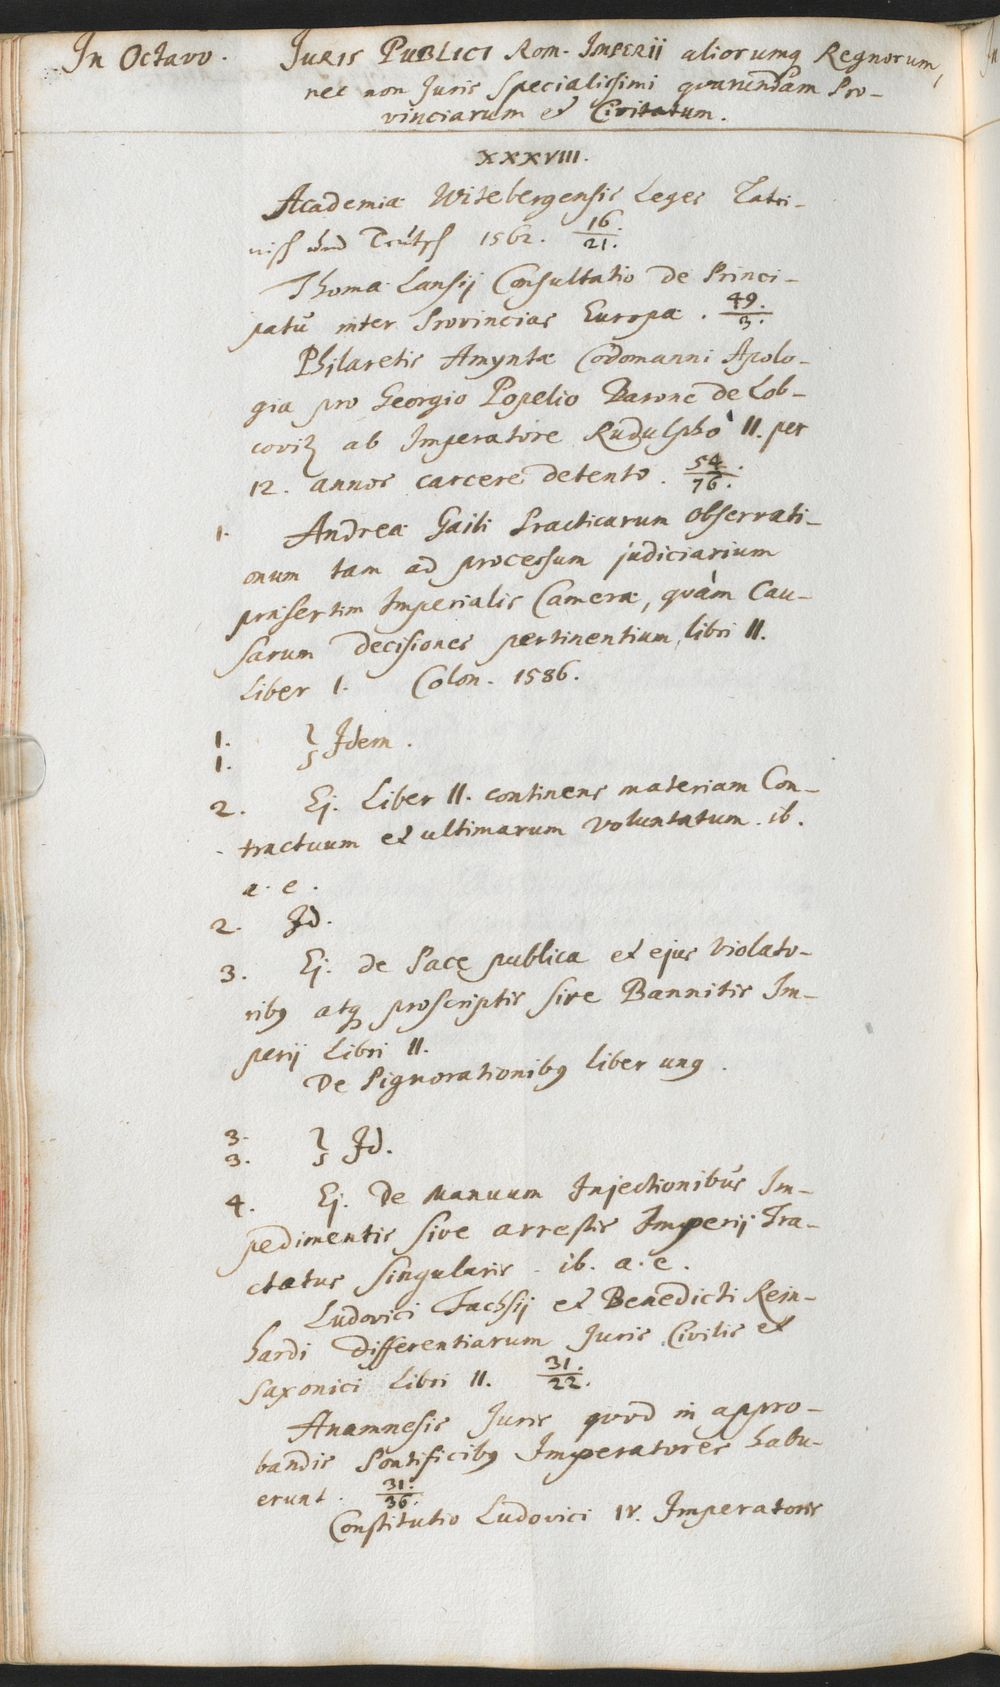 In Octavo. Juris Publici Rom. Imperii aliorumq Regnorum,
nec non Juris Specialissimi quarundam Pro-
vinciarum et Civitatum.
XXXVIII.
Academiæ Witebergensis Leges Latei-
nisch und Teutsch 1562. 16./21.
Thomæ Lansij Consultatio de Princi-
patu inter Provincias Europæ. 49./3.
Philaretis Amyntæ Codomanni Apolo-
gia pro Georgio Popelio Barone de Lob-
coviz ab Imperatore Rudulpho II. per
12. annos carcere detento. 54./76.
1. Andreæ Gaili Practicarum Observati-
onum tam ad processum judiciarium
præsertim Imperialis Cameræ, quàm Cau-
sarum Decisiones pertinentium, libri II.
Liber 1. Colon. 1586.
1.
1. } Idem.
2. Ej. Liber II. continens materiam Con-
tractuum et ultimarum voluntatum. ib.
a. e.
2. Id.
3. Ej. de Pace publica et ejus violato-
ribq atq proscriptis sive Bannitis Im-
perij Libri II.
De Pignorationibq liber unq.
3.
3. } Id.
4. Ej. De Manuum Injectionibus Im-
pedimentis sive arrestis Imperij Tra-
ctatus singularis. ib. a. e.
Ludovici Fachsij et Benedicti Rein-
hardi Differentiarum Juris Civilis et
Saxonici Libri II. 31./22.
Anamnesis Juris quod in appro-
bandis Pontificibq Imperatores habu-
erunt. 31./36.
Constitutio Ludovici IV. Imperatoris